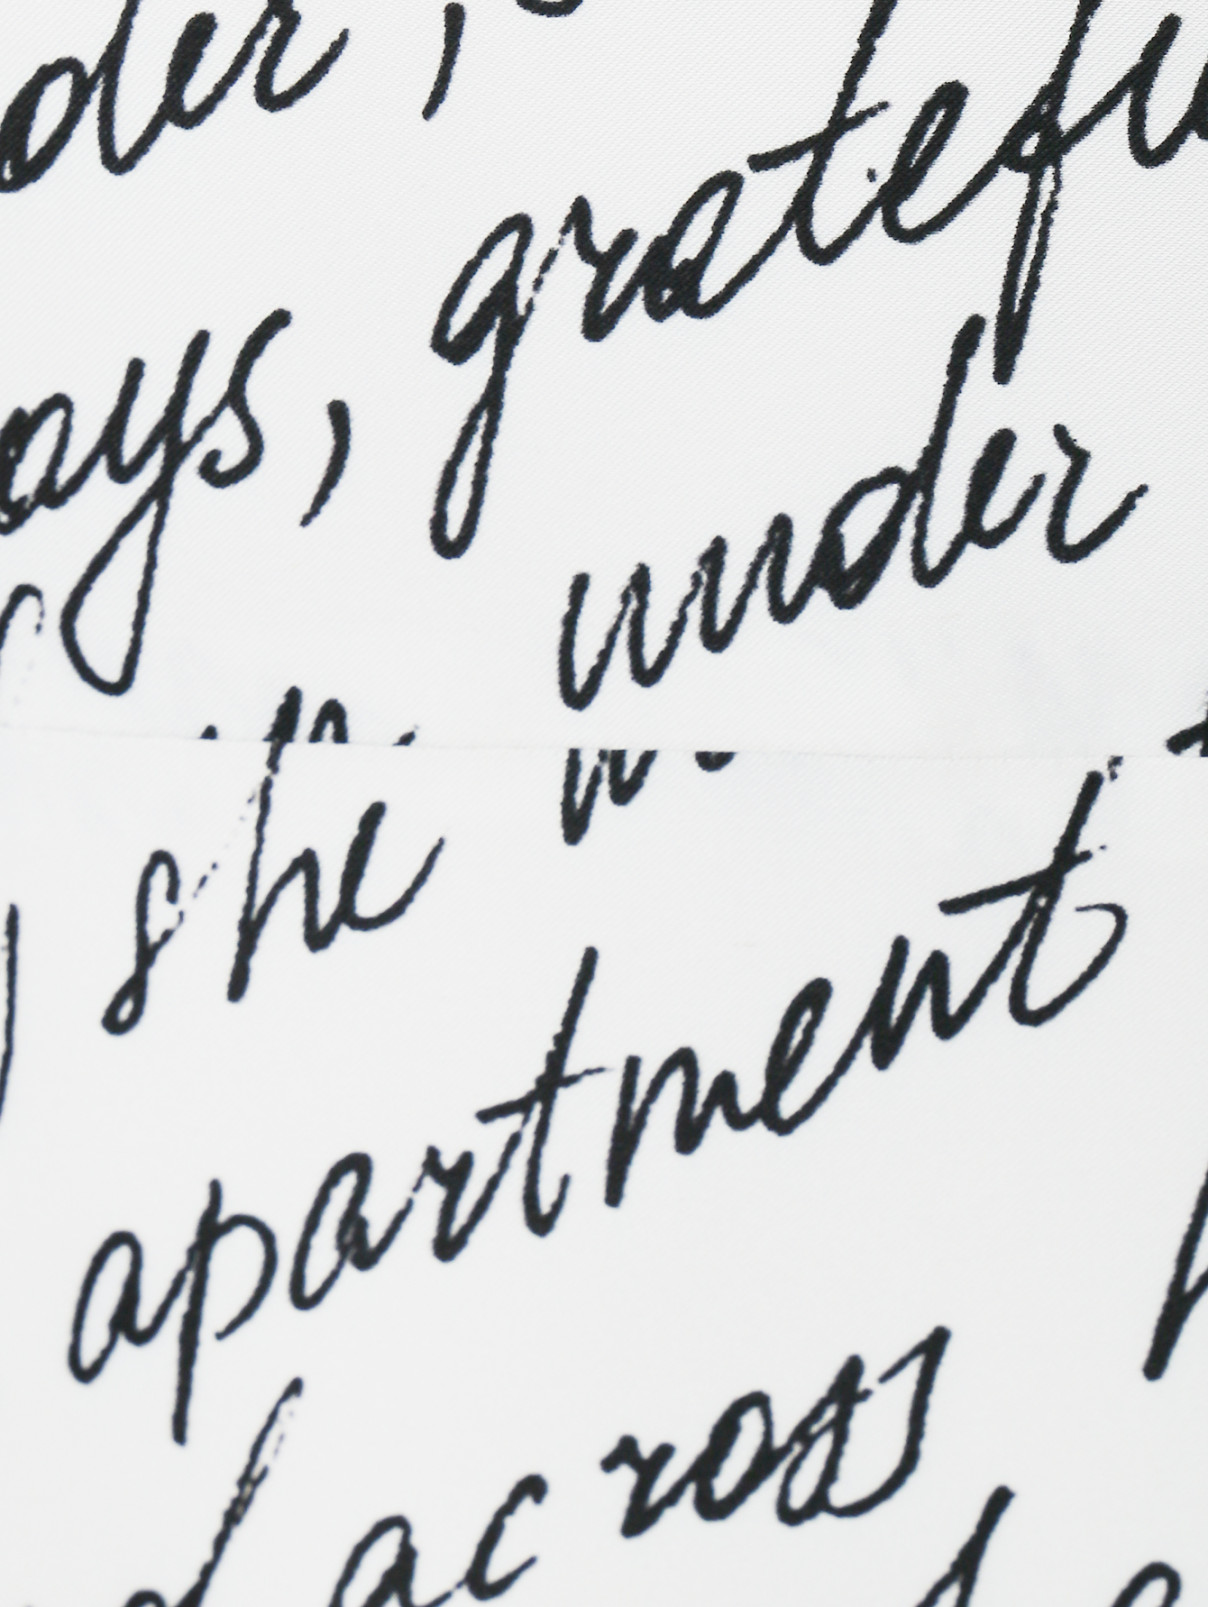 der,
ays, gratefu
under
she
apartment
across